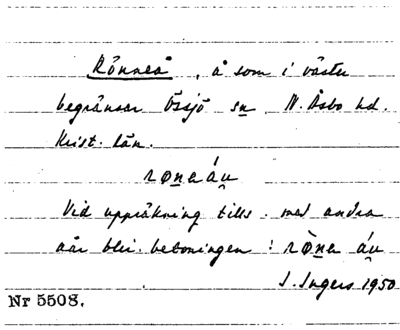 Rönneå, å som i väster
begränsar Össjö sn N. Åsbo hd.
Krist. län.
rönəáu̯
Vid uppräkning tills. med andra
åar blir betoningen: rö̀nə áu̯
I. Ingers 1950
Nr 5508.